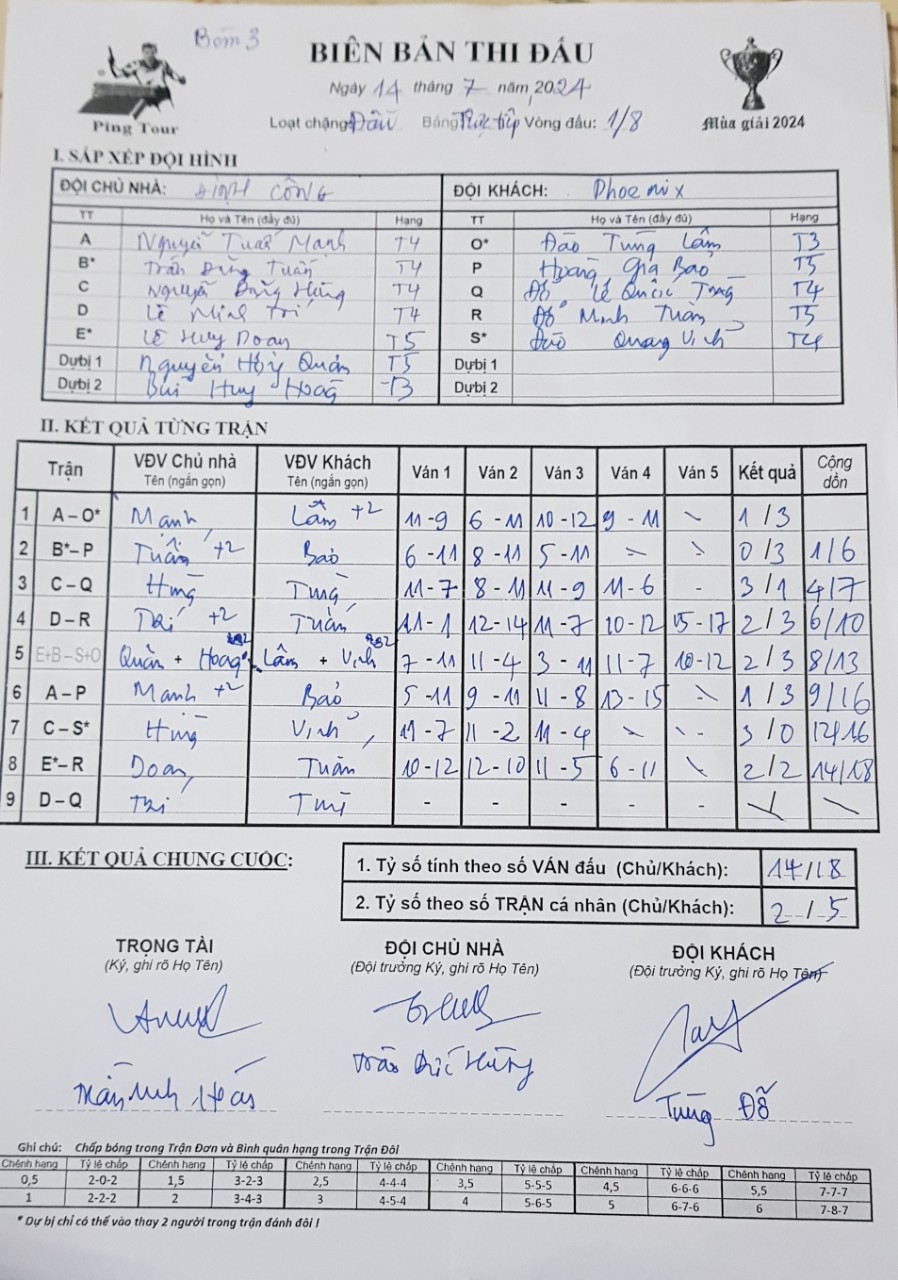 Bom 3
BIÊN BẢN THI ĐẤU
Ngày 14 tháng 7 năm 2024
Ping Tour
Loạt chặng: Đấu Bảng Trực tiếp Vòng đấu: 1/8
Mùa giải 2024
I. SẮP XẾP ĐỘI HÌNH
ĐỘI CHỦ NHÀ: ĐỊNH CÔNG ĐỘI KHÁCH: Phoenix
TT Họ và Tên (đầy đủ) Hạng TT Họ và Tên (đầy đủ) Hạng
A Nguyễn Tuấn Mạnh T4 O* Đào Tùng Lâm T3
B* Trần Tuấn T4 P Hoàng Gia Bảo T5
C Nguyễn Hùng T4 Q Đỗ Lê Quốc Tùng T4
D Lê Minh Trí T4 R Đỗ Minh Tuấn T5
E* Lê Huy Doan T5 S* Đào Quang Vinh T4
Dự bị 1 Nguyễn Quân T5 Dự bị 1
Dự bị 2 Bùi Huy Hoàg T3 Dự bị 2
II. KẾT QUẢ TỪNG TRẬN
Trận VĐV Chủ nhà Tên (ngắn gọn) VĐV Khách Tên (ngắn gọn) Ván 1 Ván 2 Ván 3 Ván 4 Ván 5 Kết quả Cộng dồn
1 A – O* Mạnh Lâm +2 11 - 9 6 - 11 10 - 12 9 - 11 \ 1 / 3
2 B* – P Tuấn +2 Bảo 6 - 11 8 - 11 5 - 11 \ \ 0 / 3 1/6
3 C – Q Hùng Tùng 11 - 7 8 - 11 11 - 9 11 - 6 - 3 / 1 4/7
4 D – R Trí +2 Tuấn 11 - 1 12 - 14 11 - 7 10 - 12 15 - 17 2 / 3 6/10
5 E+B – S+O Quân + Hoàg Lâm + Vinh 7 - 11 11 - 4 3 - 11 11 - 7 10 - 12 2 / 3 8/13
6 A – P Mạnh +2 Bảo 5 - 11 9 - 11 11 - 8 13 - 15 \ 1 / 3 9/16
7 C – S* Hùng Vinh 11 - 7 11 - 2 11 - 4 \ \ 3 / 0 12/16
8 E* – R Doan Tuấn 10 - 12 12 - 10 11 - 5 6 - 11 \ 2 / 2 14/18
9 D – Q Trí - - - - - \ \
III. KẾT QUẢ CHUNG CUỘC:
1. Tỷ số tính theo số VÁN đấu (Chủ/Khách): 14/18
2. Tỷ số theo số TRẬN cá nhân (Chủ/Khách): 2 / 5
TRỌNG TÀI ĐỘI CHỦ NHÀ ĐỘI KHÁCH
(Ký, ghi rõ Họ Tên) (Đội trưởng Ký, ghi rõ Họ Tên) (Đội trưởng Ký, ghi rõ Họ Tên)
Trần Đức Hùng
Tùng Đỗ
Ghi chú: Chấp bóng trong Trận Đơn và Bình quân hạng trong Trận Đôi
Chênh hạng Tỷ lệ chấp Chênh hạng Tỷ lệ chấp Chênh hạng Tỷ lệ chấp Chênh hạng Tỷ lệ chấp Chênh hạng Tỷ lệ chấp Chênh hạng Tỷ lệ chấp
0,5 2-0-2 1,5 3-2-3 2,5 4-4-4 3,5 5-5-5 4,5 6-6-6 5,5 7-7-7
1 2-2-2 2 3-4-3 3 4-5-4 4 5-6-5 5 6-7-6 6 7-8-7
* Dự bị chỉ có thể vào thay 2 người trong trận đánh đôi !